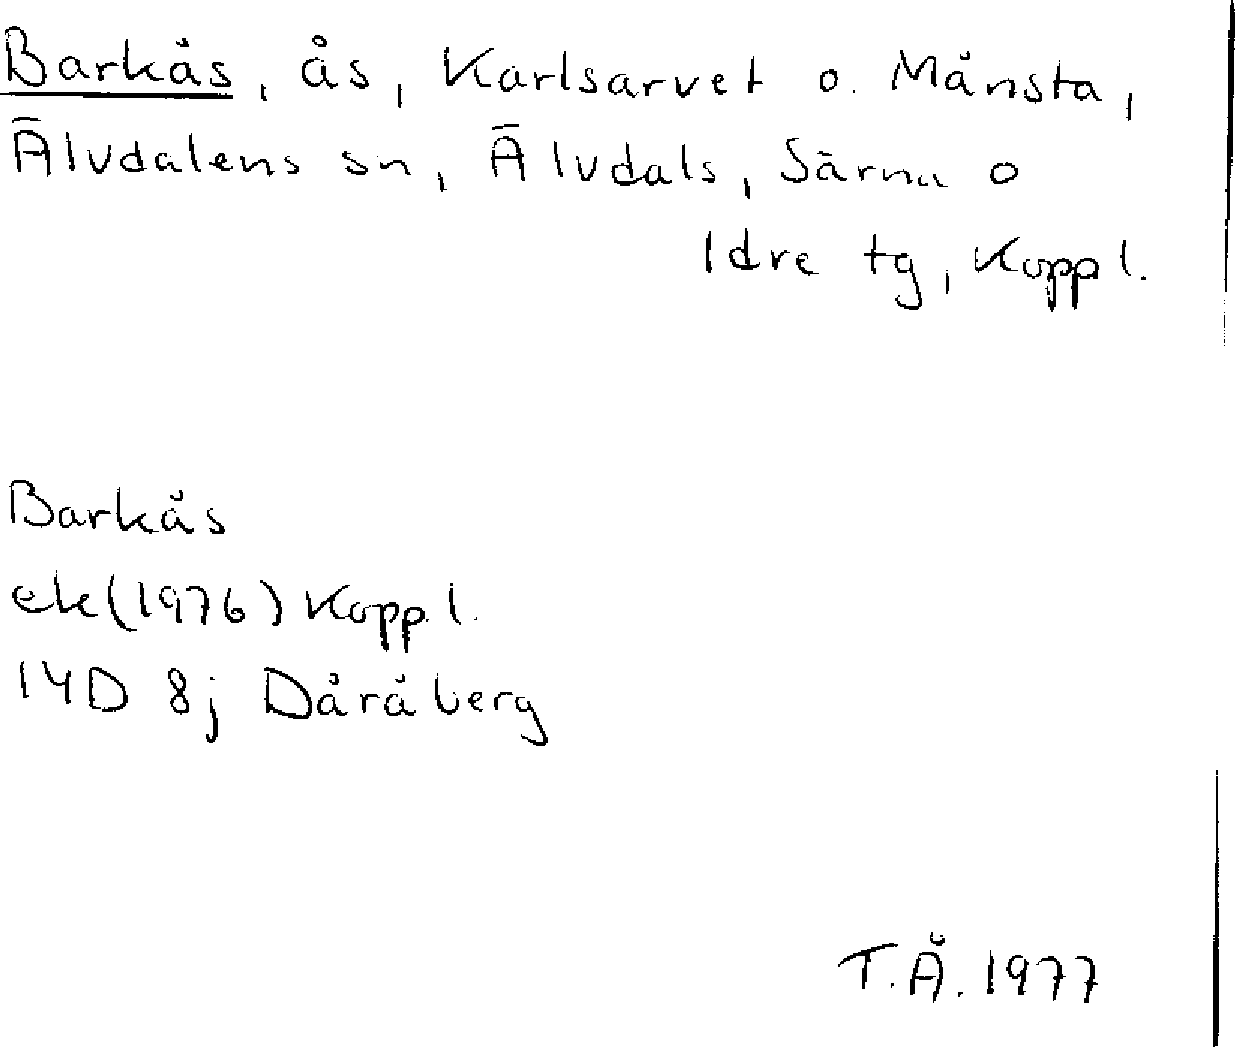 Barkås, ås, Karlsarvet o. Månsta,
Älvdalens sn, Älvdals, Särna o
Idre tg, Kopp l.
Barkås
ek(1976) Kopp. l.
14D 8j Dåråberg
T.Å. 1977